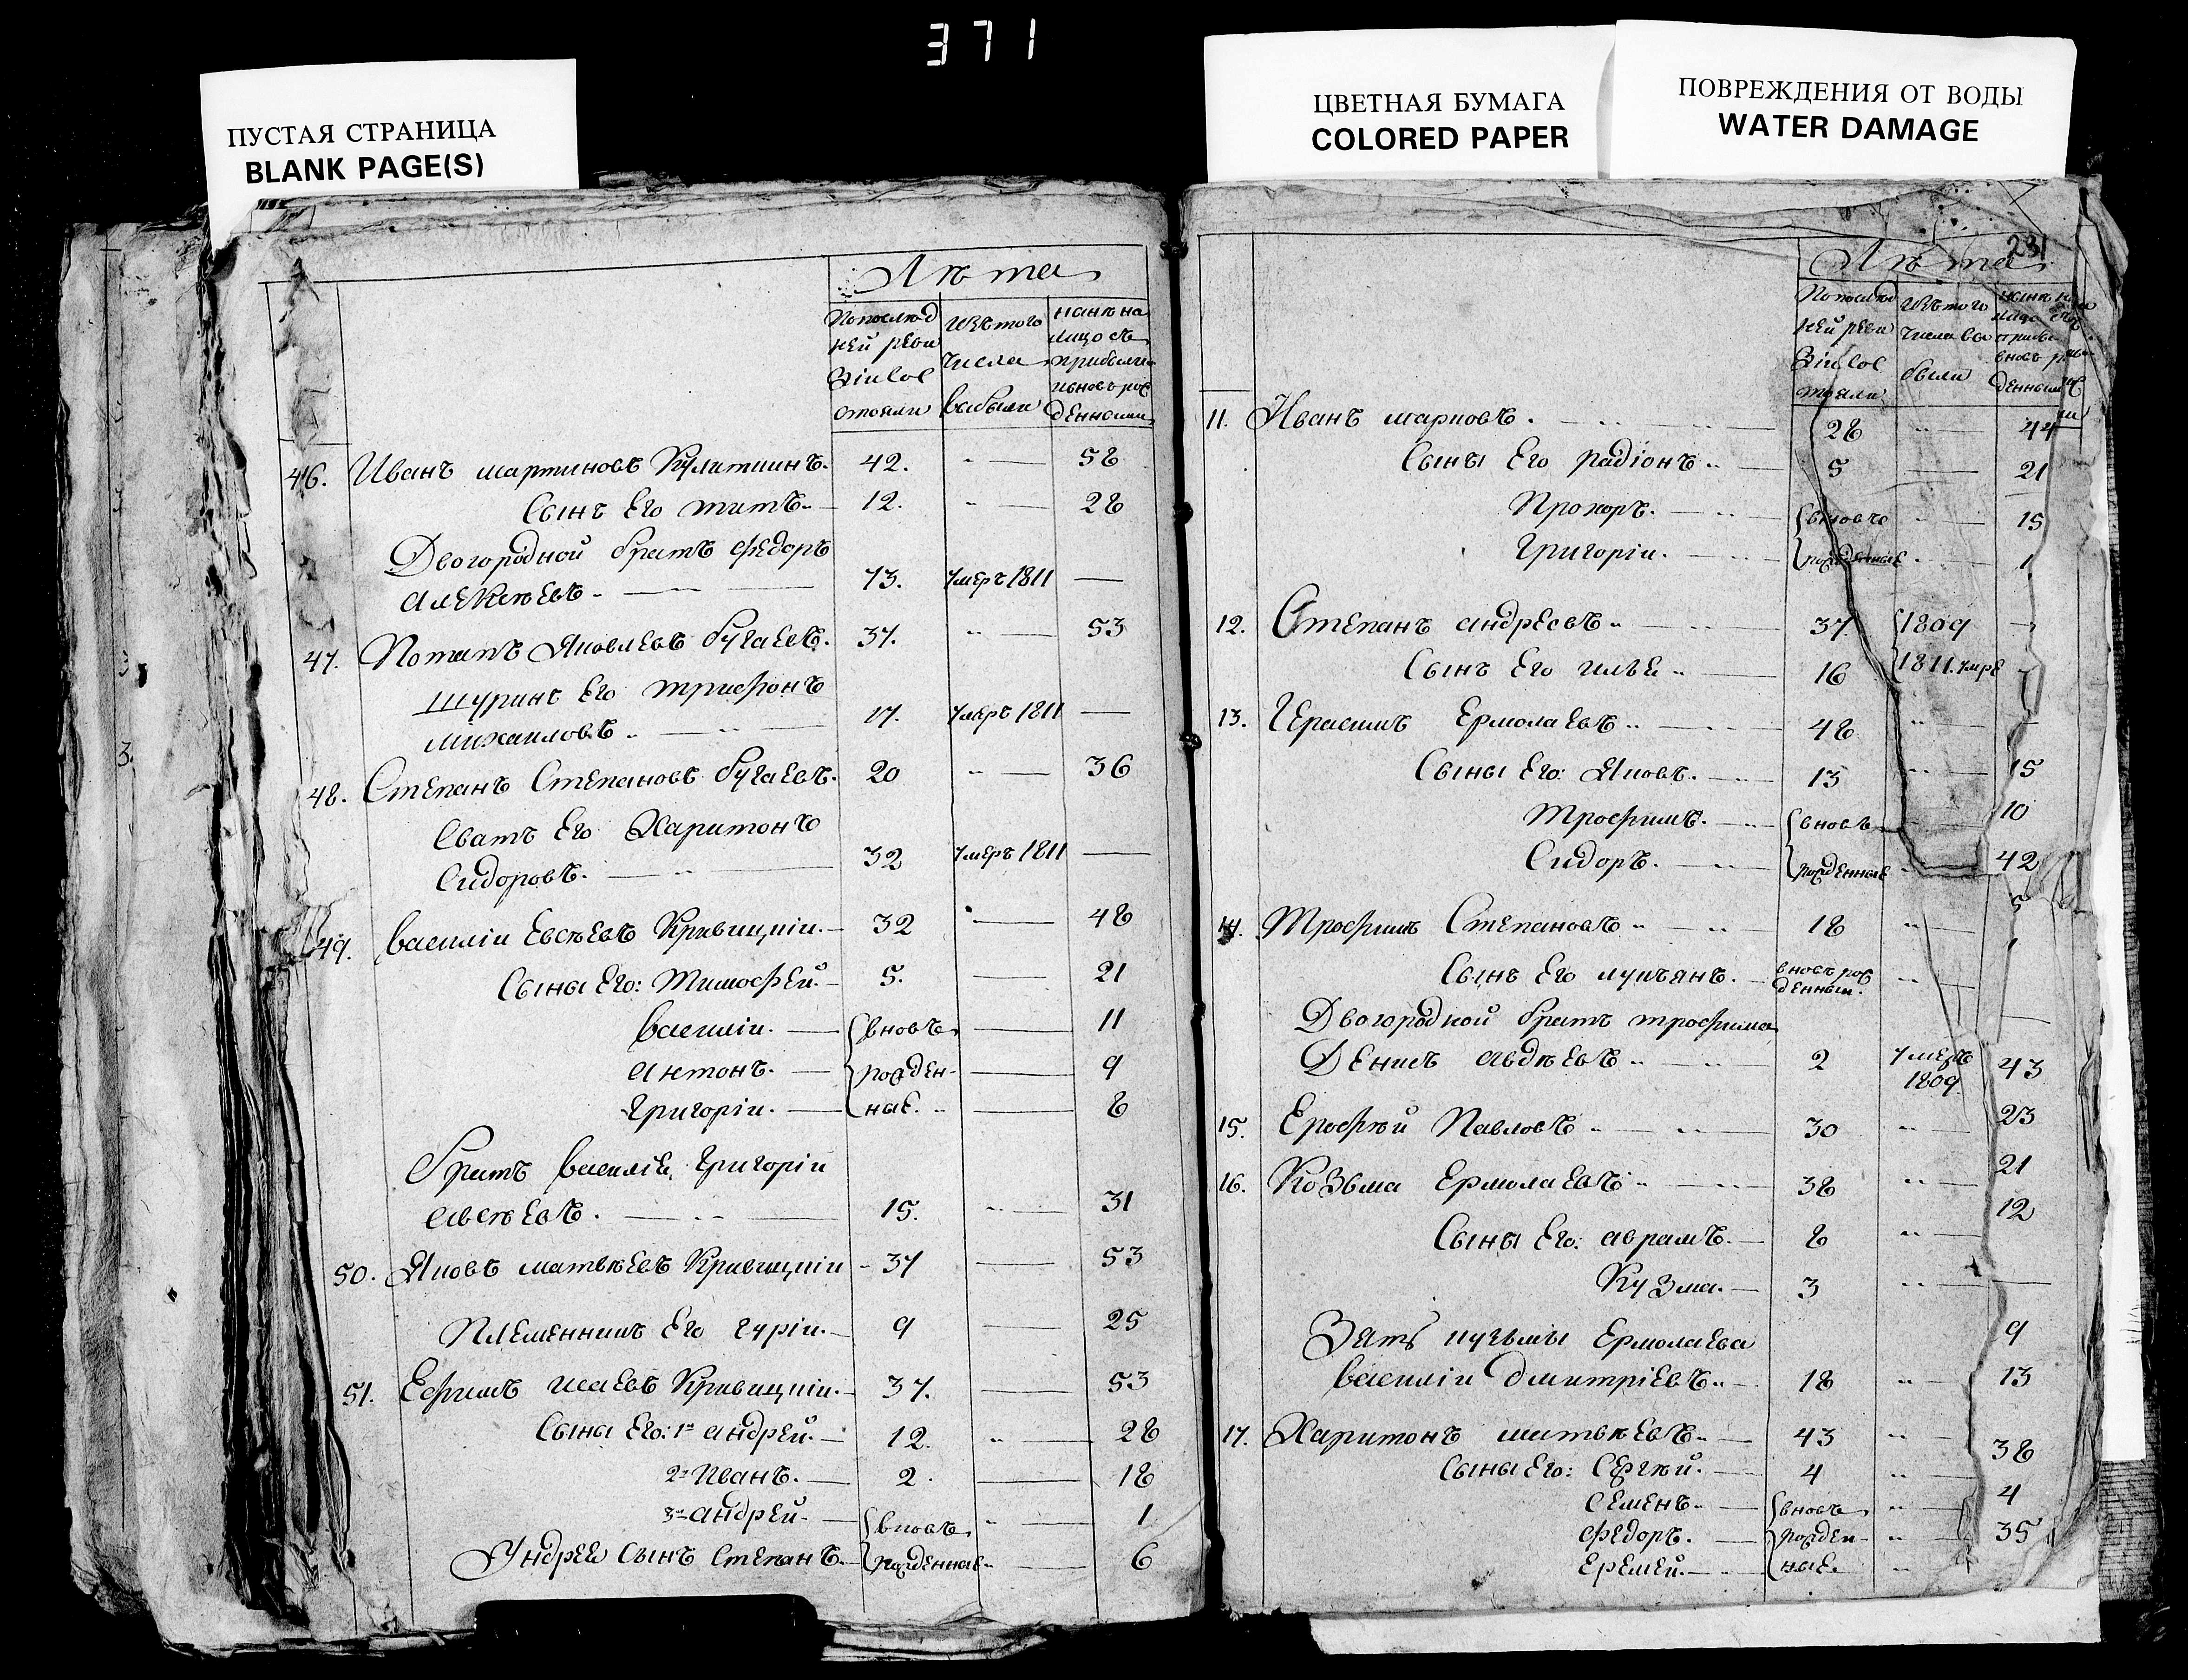 371
ПУСТАЯ СТРАНИЦА
BLANK PAGE(S)
ЦВЕТНАЯ БУМАГА
COLORED PAPER
ПОВРЕЖДЕНИЯ ОТ ВОДЫ
WATER DAMAGE
Лѣта
Попослѣд ней реви зіи сос стояли
Изтого числа выбыли
нынѣ на лицо съ прибылы и вновь рож денными
46. Иванъ мартиновъ 42. 58
Сынъ его титъ 12. 28
Двоюродной братъ федоръ
алексѣевъ 13. умеръ 1811
47. Потапъ Яковлевъ бугаевъ. 37. 53
Шуринъ его трифонъ
михаиловъ 17. умеръ 1811
48. Степанъ Степановъ бугаевъ. 20 36
Сватъ его Харитонъ
Сидоровъ. 32 умеръ 1811
49. василіи Евсѣевъ Кривицкіи. 32 48
Сыны его: Тимофей. 5. 21
василіи. вновь 11
антонъ. рожден- 9
Григоріи. ные. 8
братъ василія Григоріи
евсѣевъ. 15. 31
50. Яковъ матвѣевъ Кривицкіи 37 53
Племенникъ его гуріи. 9 25
51. Ефимъ исаевъ Кривицкіи. 37. 53
Сыны его: 1й андрей. 12. 28
2й Иванъ. 2. 18
3й андрей. вновь 1
Андрея сынъ степанъ. рожденные 6
231
Лѣта
Попослѣд ней реви зіи сос тояли
Изтого числа вы были
11. Иванъ марковъ. 28 44
Сыны его радіонъ 5 21
Прохоръ. вновь 15
Григоріи. рожденные 1
12. Степанъ андреевъ 37 1809
Сынъ его илья 16 1811. умре
13. Герасимъ Ермолаевъ 48
Сыны его: Яковъ. 13 15
Трофимъ. вновь 10
Сидоръ. рожденные 42
5
14. Трофимъ Степановъ 18 1
Сынъ его лукъянъ. вновь рож денный.
Двоюродной братъ трофима
Денисъ авдѣевъ 2 умеръ 1809 43
23
15. Ерофѣй Павловъ 30
21
16. Козьма Ермолаевъ 38
12
Сыны его: аврамъ. 8
Кузма. 3
Зять кузьмы Ермолаева 9
василіи дмитріевъ 18 13
17. Харитонъ матвѣевъ 43 38
Сыны его: Сергѣй. 4
семенъ вновь 4
федоръ. рожден- 35
еремей. ные.